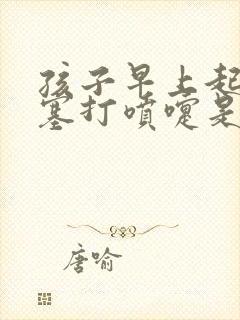 孩子早上起
塞打喷嚏是
唐喻